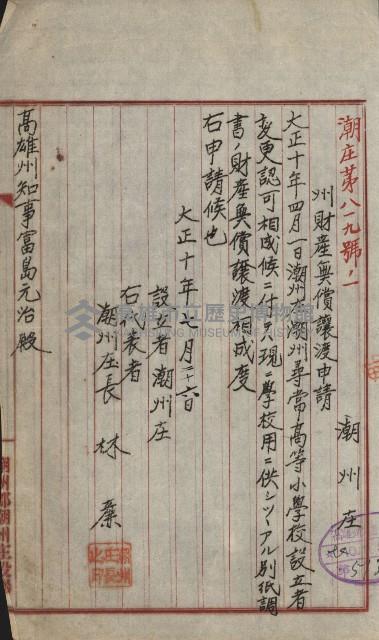 潮庄第八一九號ノ一
潮州庄
州財産無償讓渡申請
大正十年四月一日潮州庄潮州尋常高等小學校設立者
変更認可相成候ニ付テハ現ニ學校用ニ供シツヽアル別紙調
書ノ財産無償讓渡相成度
右申請候也
大正十年七月二十六日
設立者潮州庄
右代表者
潮州庄長 林
高雄州知事富島元治殿
高雄市立歷史博物館
KAOHSIUNG MUSEUM OF HISTORY